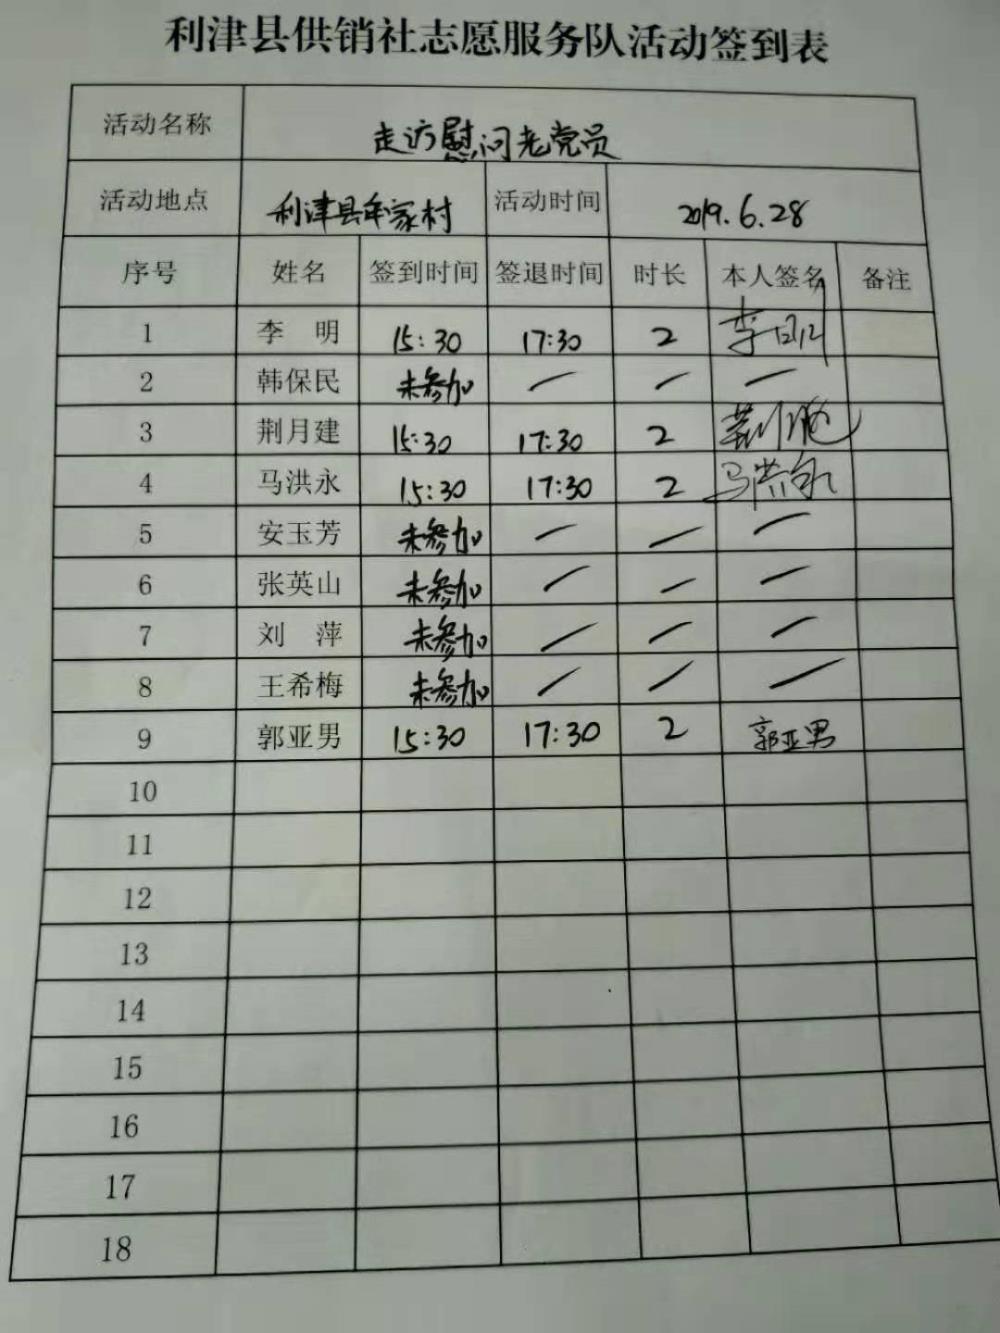 利津县供销社志愿服务队活动签到表
活动名称 走访慰问老党员
活动地点 利津县牟家村 活动时间 2019.6.28
序号 姓名 签到时间 签退时间 时长 本人签名 备注
1 李 明 15:30 17:30 2 李明
2 韩保民 未参加 — — —
3 荆月建 15:30 17:30 2
4 马洪永 15:30 17:30 2 马洪永
5 安玉芳 未参加 — — —
6 张英山 未参加 — — —
7 刘 萍 未参加 — — —
8 王希梅 未参加 — — —
9 郭亚男 15:30 17:30 2 郭亚男
10
11
12
13
14
15
16
17
18